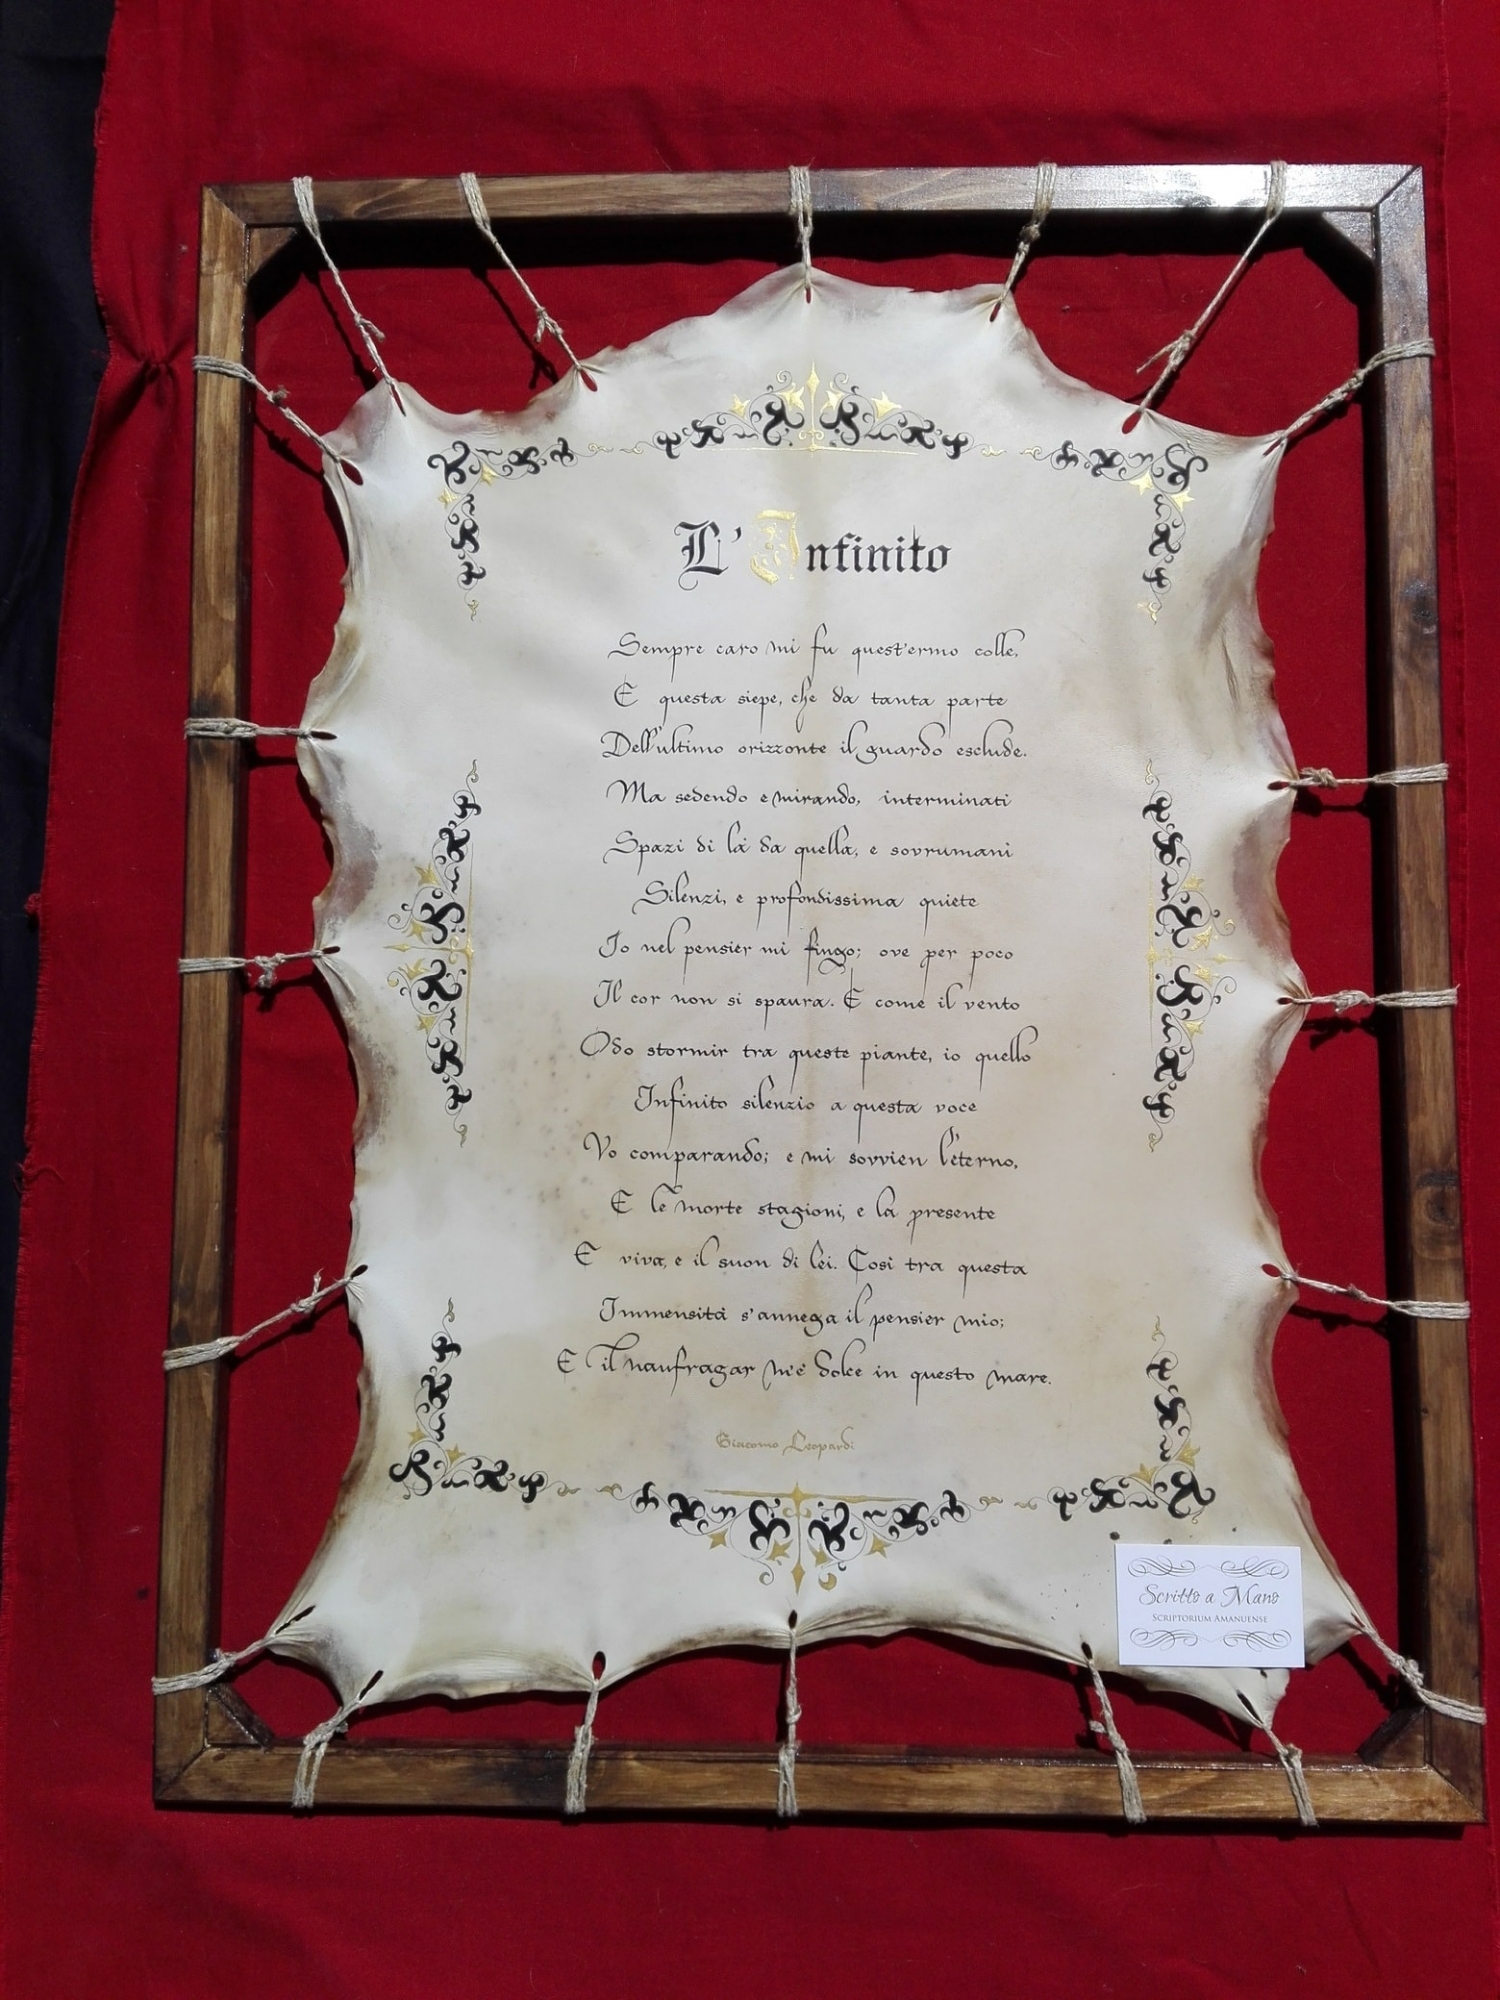 L'Infinito
Sempre caro mi fu quest'ermo colle,
E questa siepe, che da tanta parte
Dell'ultimo orizzonte il guardo esclude.
Ma sedendo e mirando, interminati
Spazi di là da quella, e sovrumani
Silenzi, e profondissima quiete
Io nel pensier mi fingo; ove per poco
Il cor non si spaura. E come il vento
Odo stormir tra queste piante, io quello
Infinito silenzio a questa voce
Vo comparando; e mi sovvien l'eterno,
E le morte stagioni, e la presente
E viva, e il suon di lei. Così tra questa
Immensità s'annega il pensier mio;
E il naufragar m'è dolce in questo mare.
Giacomo Leopardi
Scritto a Mano
SCRIPTORIUM AMANUENSE